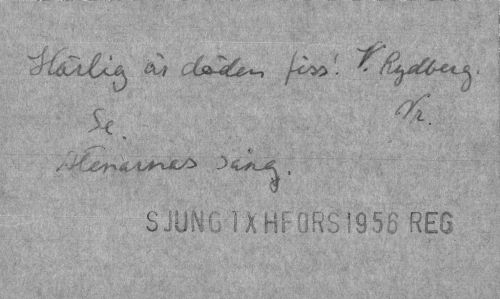 Härlig är döden fiss! V. Rydberg.
Vr.
Se.
Atenarnas sång.
SJUNG 1XHFORS1956 REG